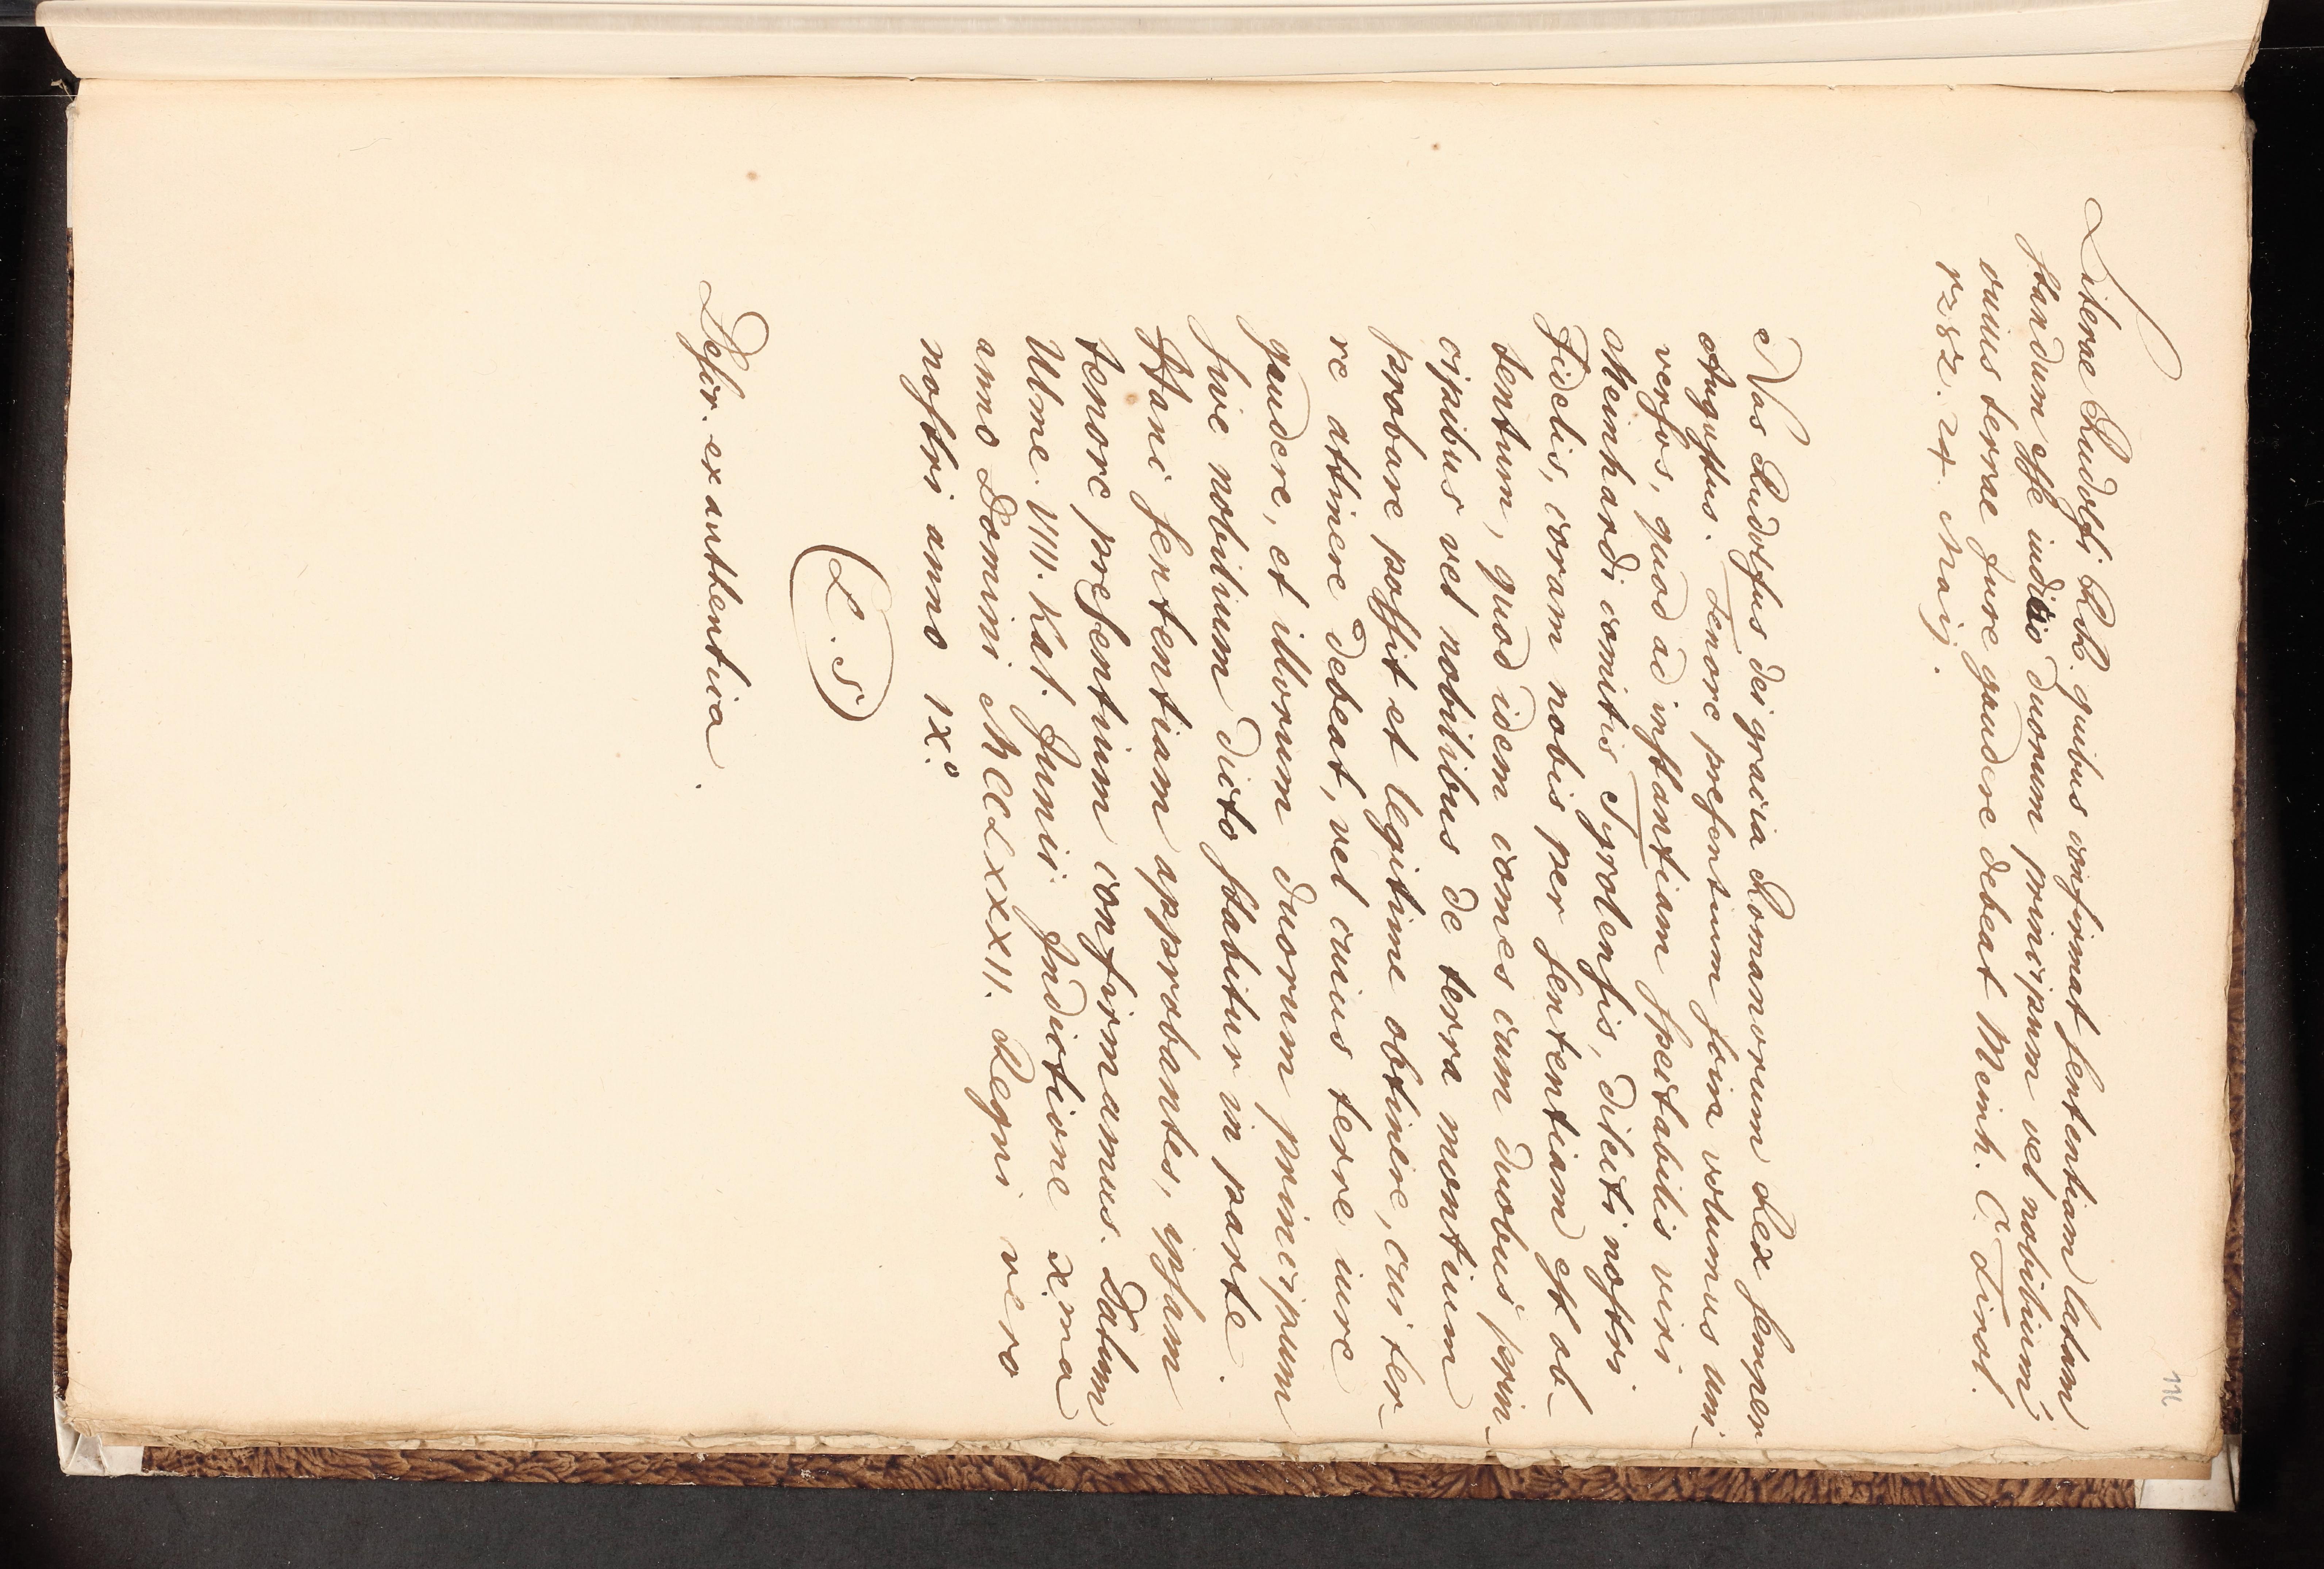 111
Literae Rudolfi R. R. quibus confirmat sententiam latam
standum esse iudicio duorum principum vel nobilium
cuius terrae jure gaudere debeat Meinh. C. Tirol.
1282. 24. Maij.
Nos Rudolfus dei gracia Romanorum Rex semper
Augustus. Tenore presentium scire volumus uni-
versos, quod ad instantiam spectabilis viri
Meinhardi comitis Tyrolensis, dilecti nostri
Fidelis, coram nobis per sententiam est ob-
tentum, quod idem comes cum duobus prin-
cipibus vel nobilibus de terra montium
probare possit et legitime obtinere, cui ter-
re attinere debeat, vel cuius terre iure
gaudere, et illorum duorum principum
sive nobilium dicto stabitur in parte.
Hanc sententiam approbantes, ipsam
tenore presentium confirmamus. Datum
Ulme. VIIII. Kal. Junii. Indictione x.ma
anno Domini MCCLXXXII. Regni vero
nostri anno IX.o
L. S
Descr. ex authentica.